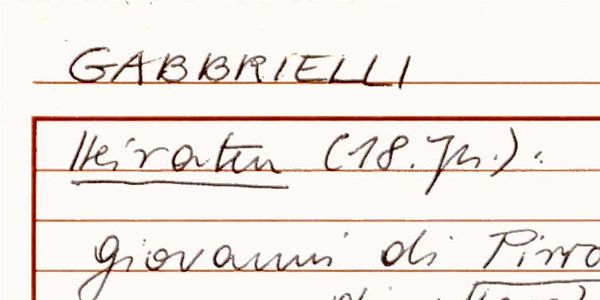 GABBRIELLI
Heiraten (18. Jh.):
Giovanni di Pirro
di